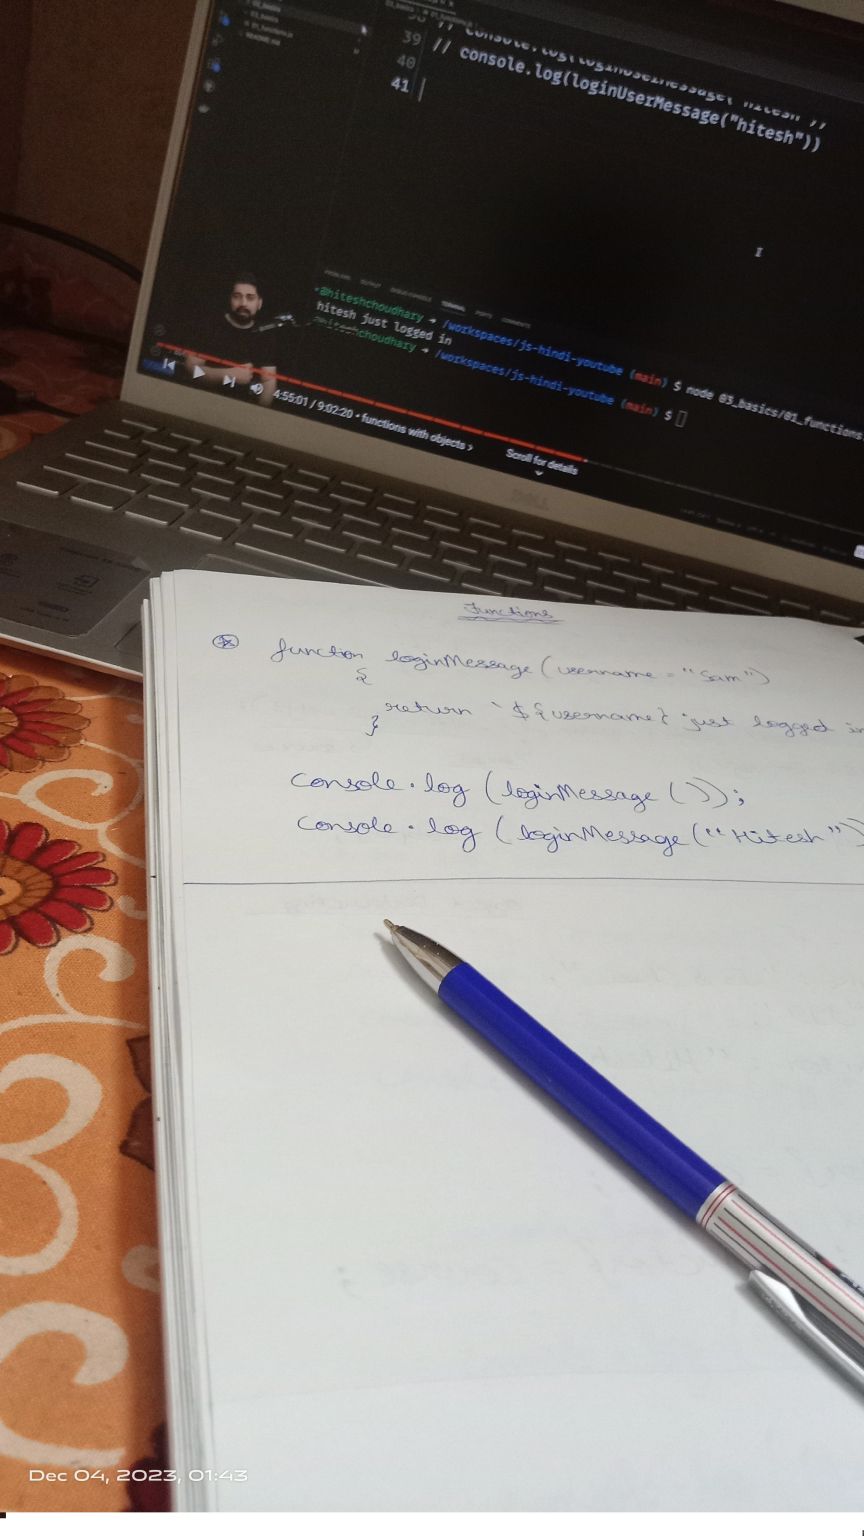 39
40 // console.log(loginUserMessage("hitesh"))
41
PROBLEMS OUTPUT TERMINAL PORTS COMMENTS
@hiteshchoudhary → /workspaces/js-hindi-youtube (main) $ node 03_basics/01_functions.
hitesh just logged in
@hiteshchoudhary → /workspaces/js-hindi-youtube (main) $
4:55:01 / 9:02:20 • functions with objects ›
Scroll for details
Functions
function loginMessage (username = "Sam")
{
return `${username} just logged in
}
Console.log (loginMessage ());
Console.log (loginMessage ("Hitesh")
Dec 04, 2023, 01:43